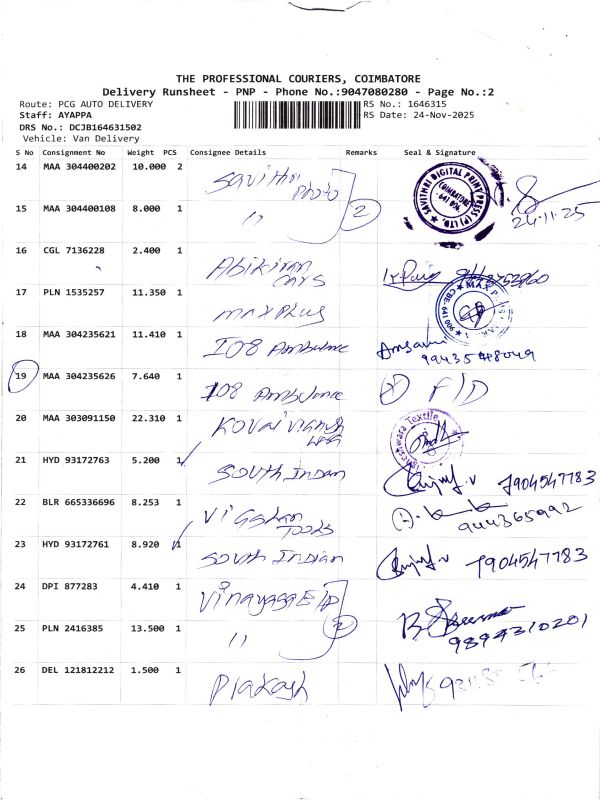 THE PROFESSIONAL COURIERS, COIMBATORE
Delivery Runsheet - PNP - Phone No.:9047080280 - Page No.:2
Route: PCG AUTO DELIVERY RS No.: 1646315
Staff: AYAPPA RS Date: 24-Nov-2025
DRS No.: DCJB164631502
Vehicle: Van Delivery
S No Consignment No Weight PCS Consignee Details Remarks Seal & Signature
14 MAA 304400202 10.000 2 Savithri Photo SAVITHRI DIGITAL PRINT PRESS (P) LTD. COIMBATORE
15 MAA 304400108 8.000 1 " 2 24.11.25
16 CGL 7136228 2.400 1 Abikiran cars
17 PLN 1535257 11.350 1 MAX PLUS MAX
18 MAA 304235621 11.410 1 108 Ambulance 9943548049
19 MAA 304235626 7.640 1 108 Ambulance F/D
20 MAA 303091150 22.310 1 KOVAI Textile
21 HYD 93172763 5.200 1 South Indian 7904547783
22 BLR 665336696 8.253 1 Tools 944365992
23 HYD 93172761 8.920 1 South Indian 7904547783
24 DPI 877283 4.410 1 Vinayaga
25 PLN 2416385 13.500 1 " 2 9894310201
26 DEL 121812212 1.500 1 Prakash